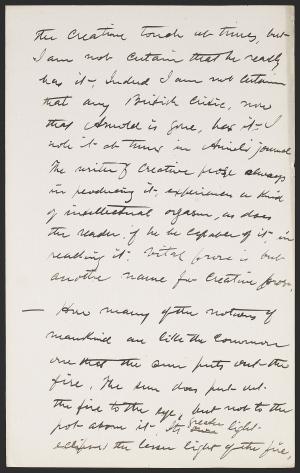 the creative touch at times, but
I am not certain that he really
has it. Indeed I am not certain
that any British Critic, now
that Arnold is gone, has it. I
note it at times in Amiel's journal
The writer of creative prose always
in producing it, experiences a kind
of intellectual orgasm, as does
the reader, if he be capable of it, in
reading it. Vital prose is but
another name for creative prose.
— How many of the notions of
mankind are like the common
one that the sun puts out the
fire. The sun does put out
the fire to the eye, but not to the
pot above it. Its greater light
eclipses the lesser light of the fire,